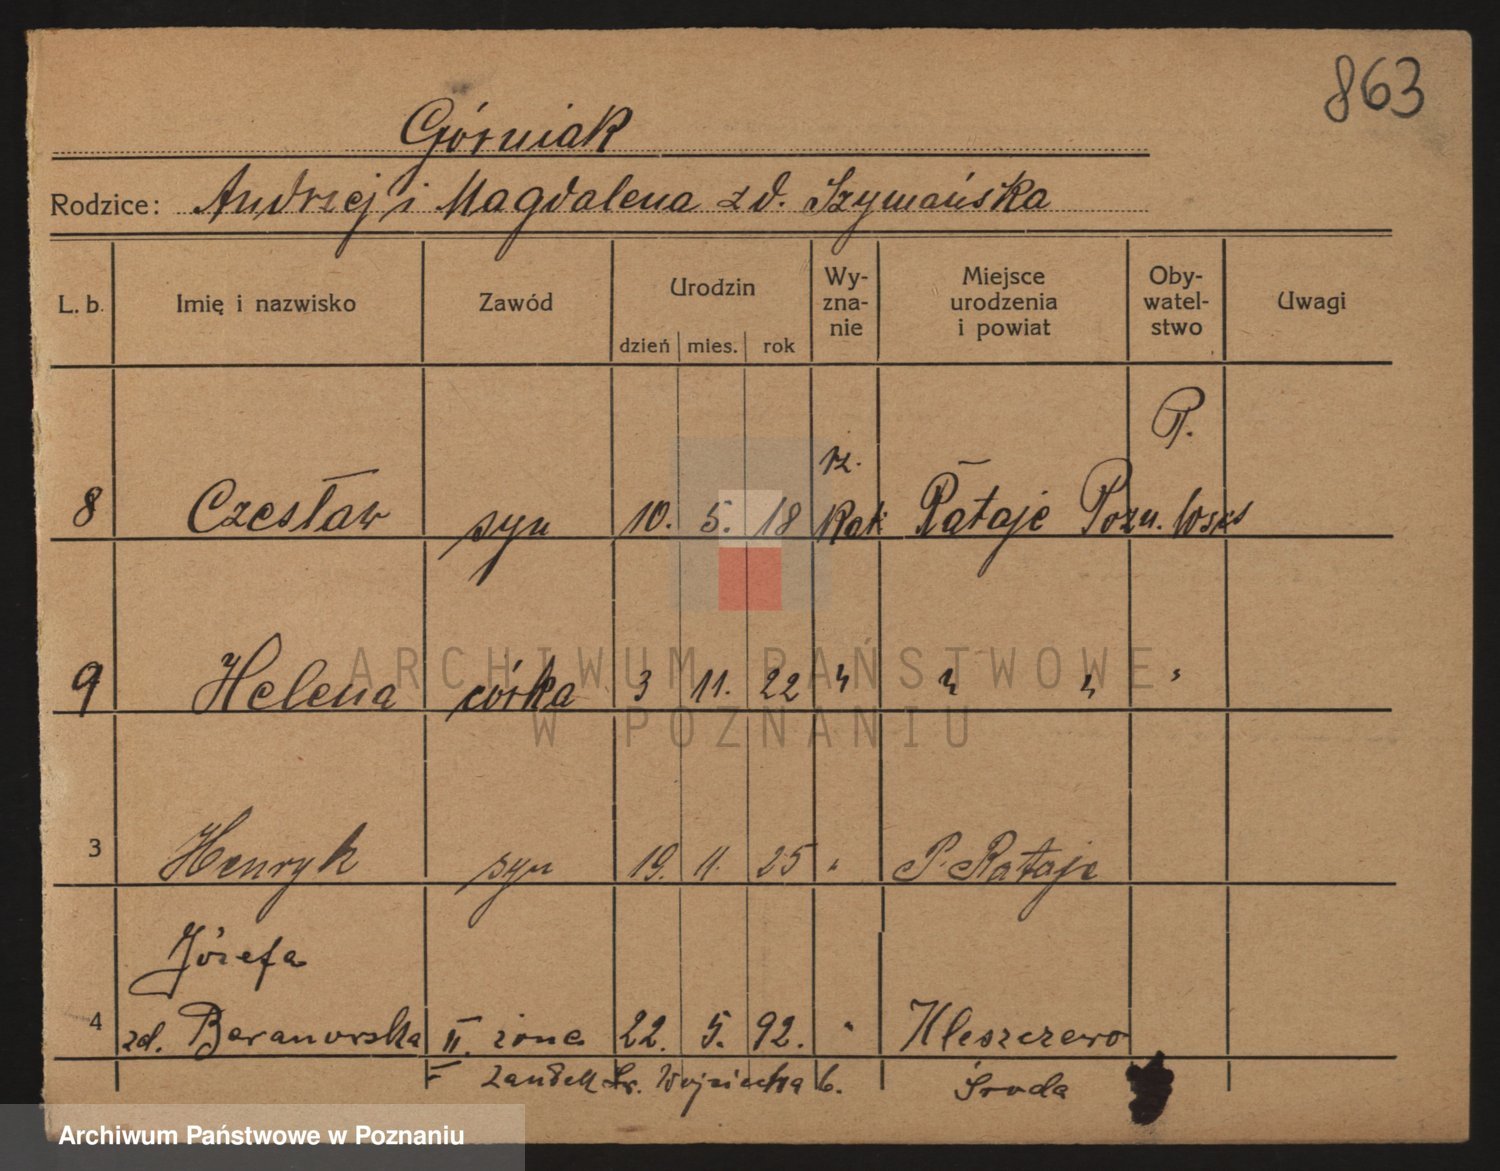 863
Górniak
Rodzice: Andrzej i Magdalena zd. Szymańska
L. b. Imię i nazwisko Zawód Urodzin dzień mies. rok Wy-zna-nie Miejsce urodzenia i powiat Oby-watel-stwo Uwagi
P.
8 Czesław syn 10. 5. 18 rz. kat Rataje Pozn.
9 Helena córka 3 11. 22 " " " "
3 Henryk syn 19. 11. 25 " P. Rataje
Józefa
4 zd. Baranowska II. żona 22. 5. 92. " Kleszczewo
Św. Wojciecha 6. Środa
ARCHIWUM PAŃSTWOWE
W POZNANIU
Archiwum Państwowe w Poznaniu